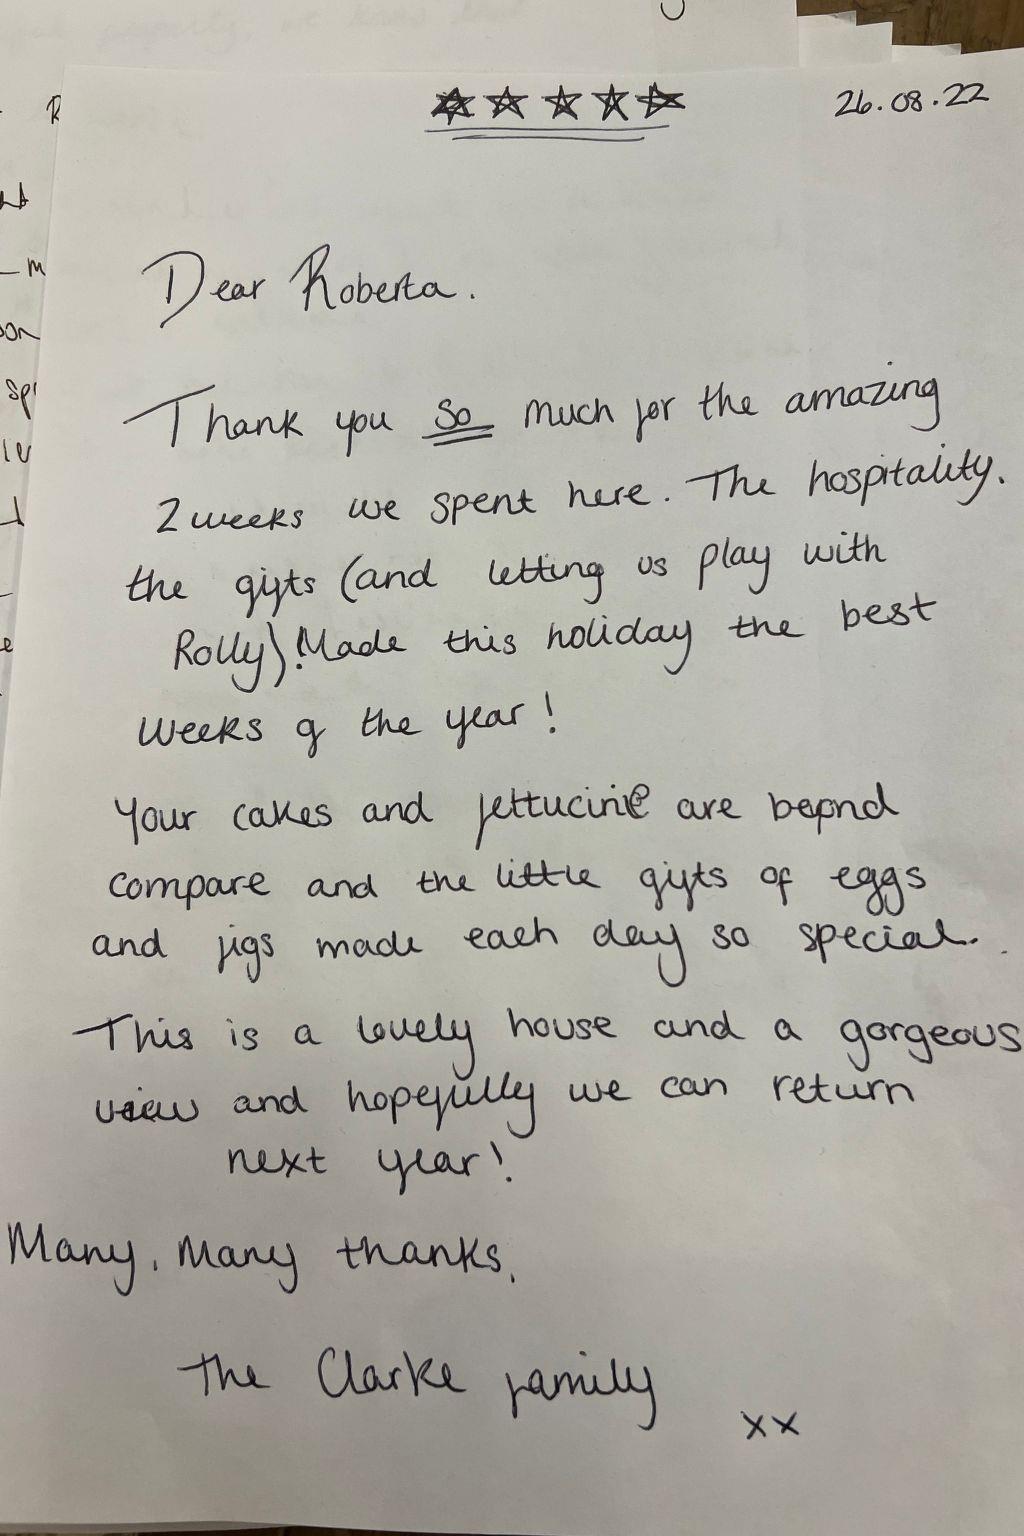 ☆☆☆☆☆ 26.08.22
Dear Roberta.
Thank you so much for the amazing
2 weeks we spent here. The hospitality,
the gifts (and letting us play with
Rolly)! Made this holiday the best
weeks of the year!
Your cakes and fettucine are beyond
compare and the little gifts of eggs
and figs made each day so special.
This is a lovely house and a gorgeous
view and hopefully we can return
next year!
Many, Many thanks,
The Clarke family
xx